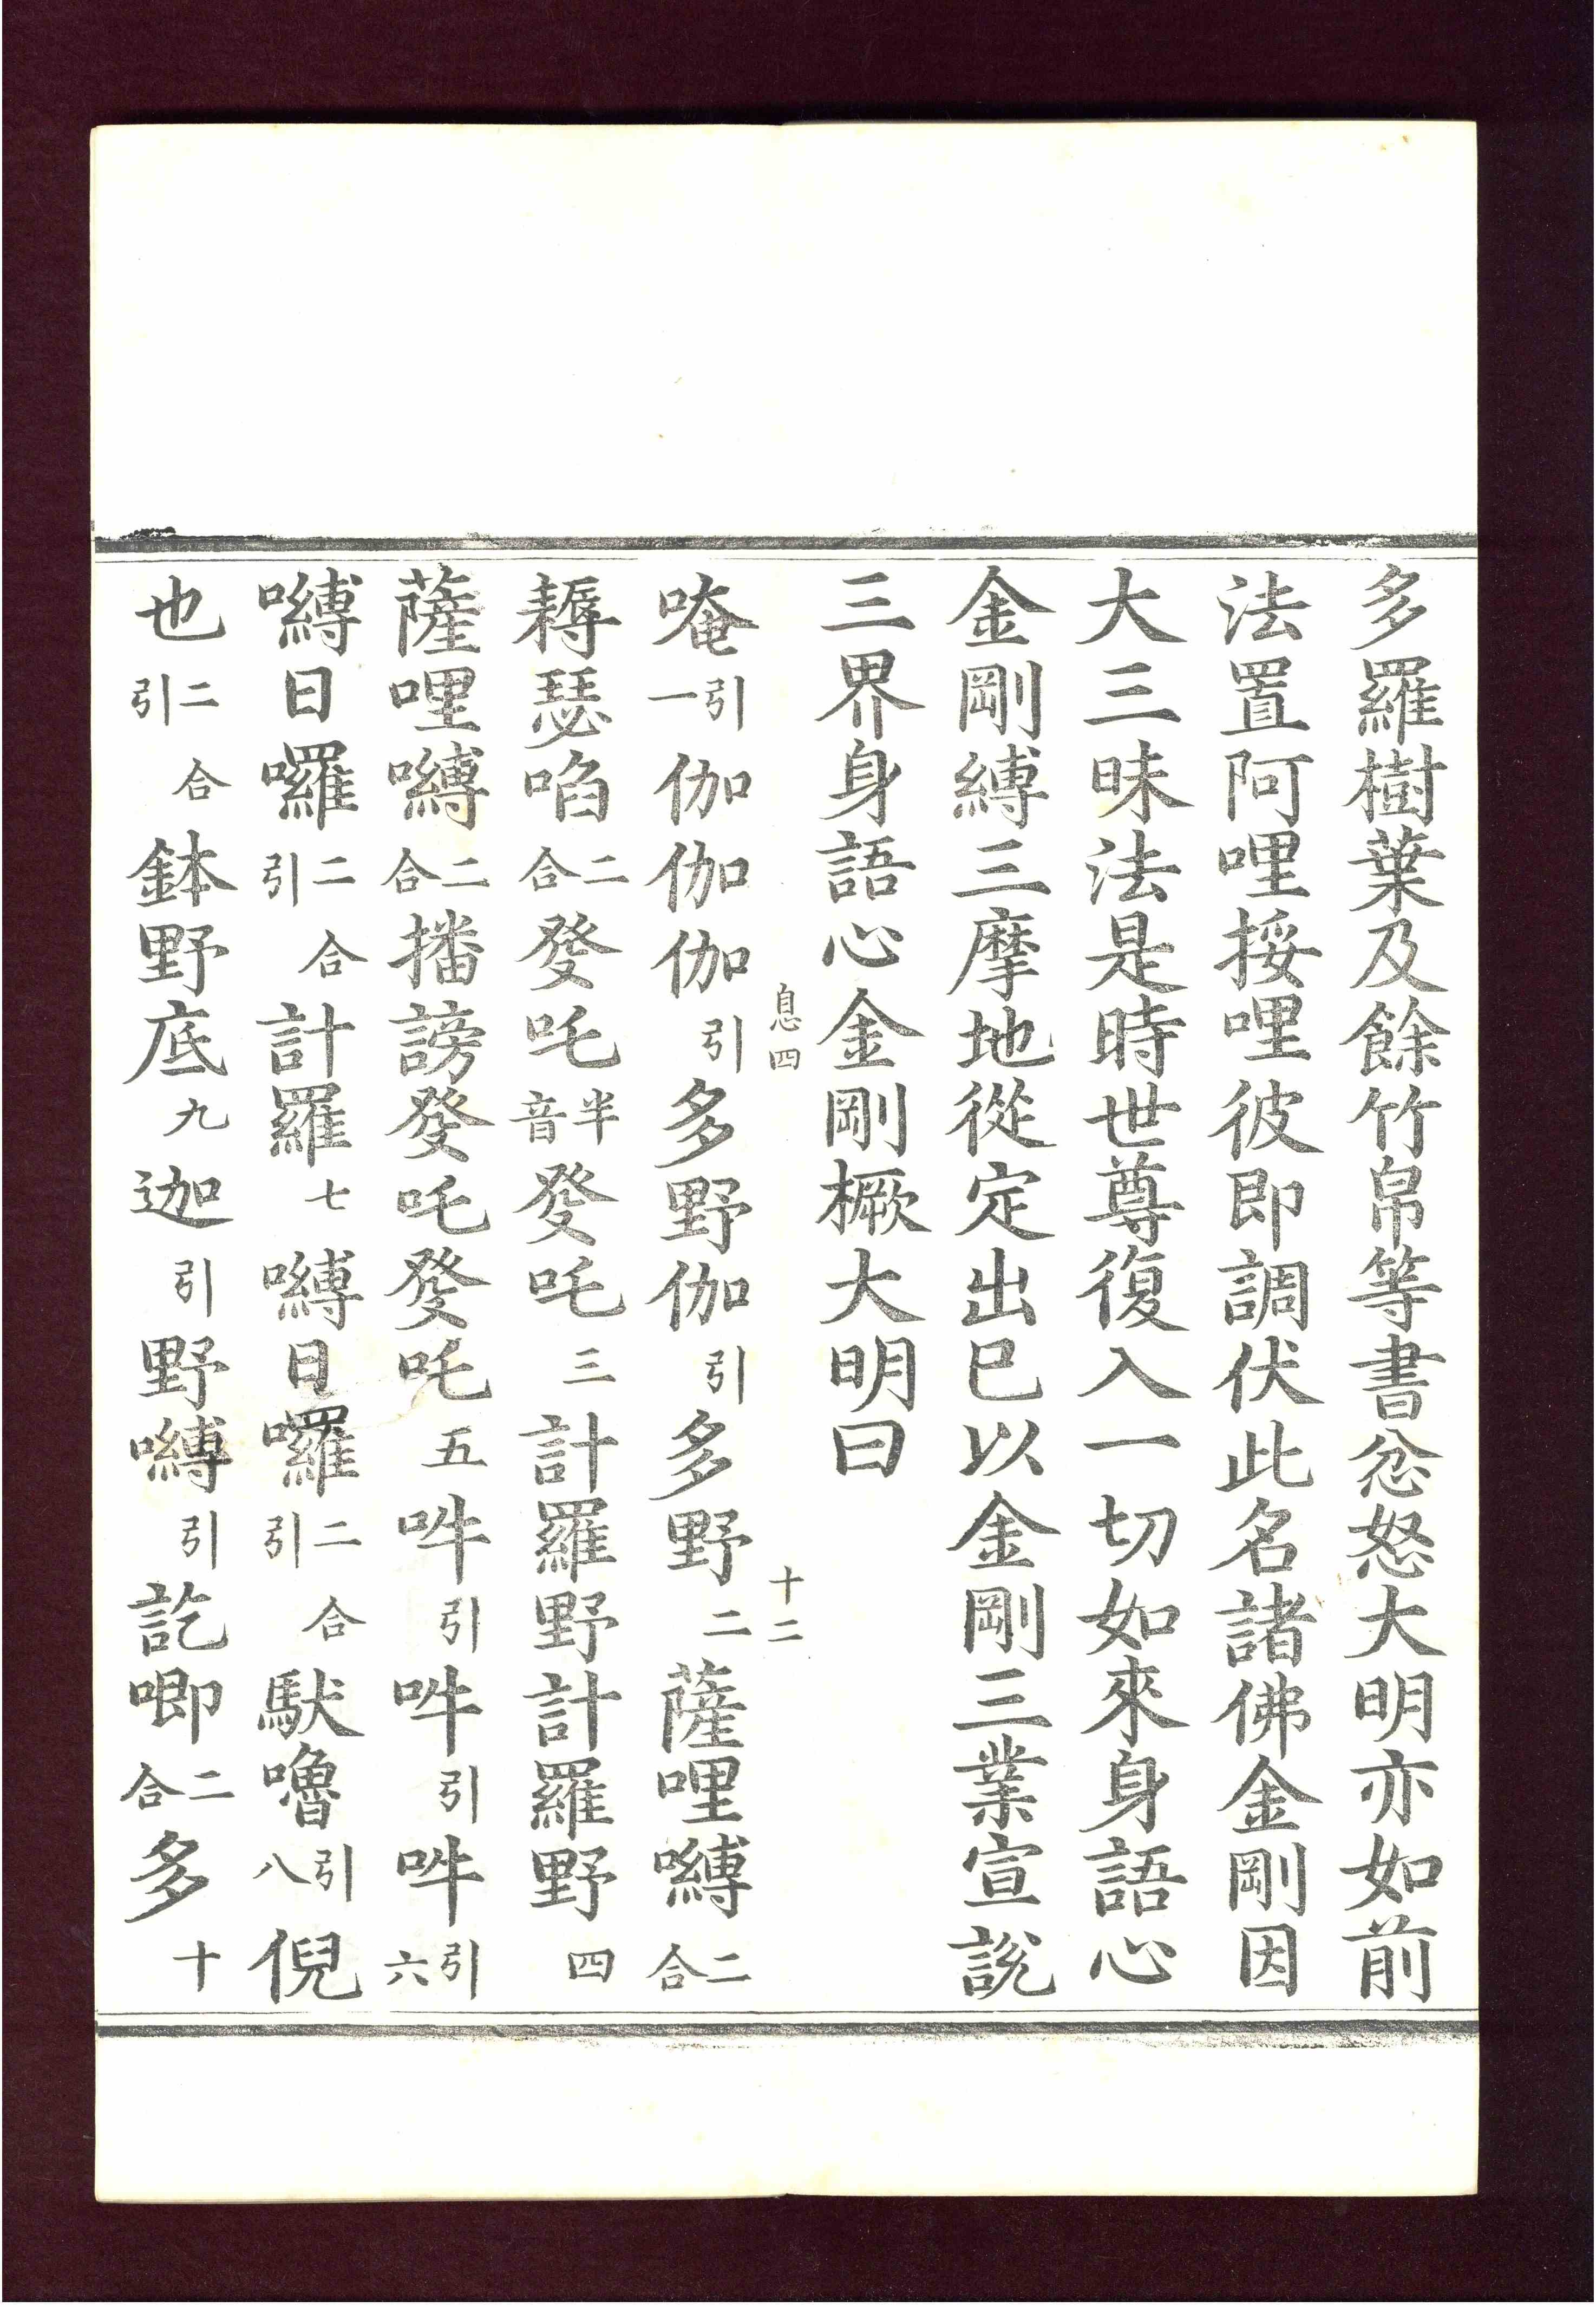 多羅樹葉及餘竹帛等書忿怒大明亦如前
法置阿哩挼哩彼即調伏此名諸佛金剛因
大三昧法是時世尊復入一切如來身語心
金剛縛三摩地從定出已以金剛三業宣說
三界身語心金剛橛大明曰
息四 十二
唵引一伽伽伽引多野伽引多野二薩哩嚩二合
耨瑟㗖二合發吒半音發吒三計羅野計羅野四
薩哩嚩二合播謗發吒發吒五吽引吽引吽引六
嚩日囉二合引計羅七嚩日囉二合引馱嚕引八倪
也二合引鉢野底九迦引野嚩引訖唧二合多十